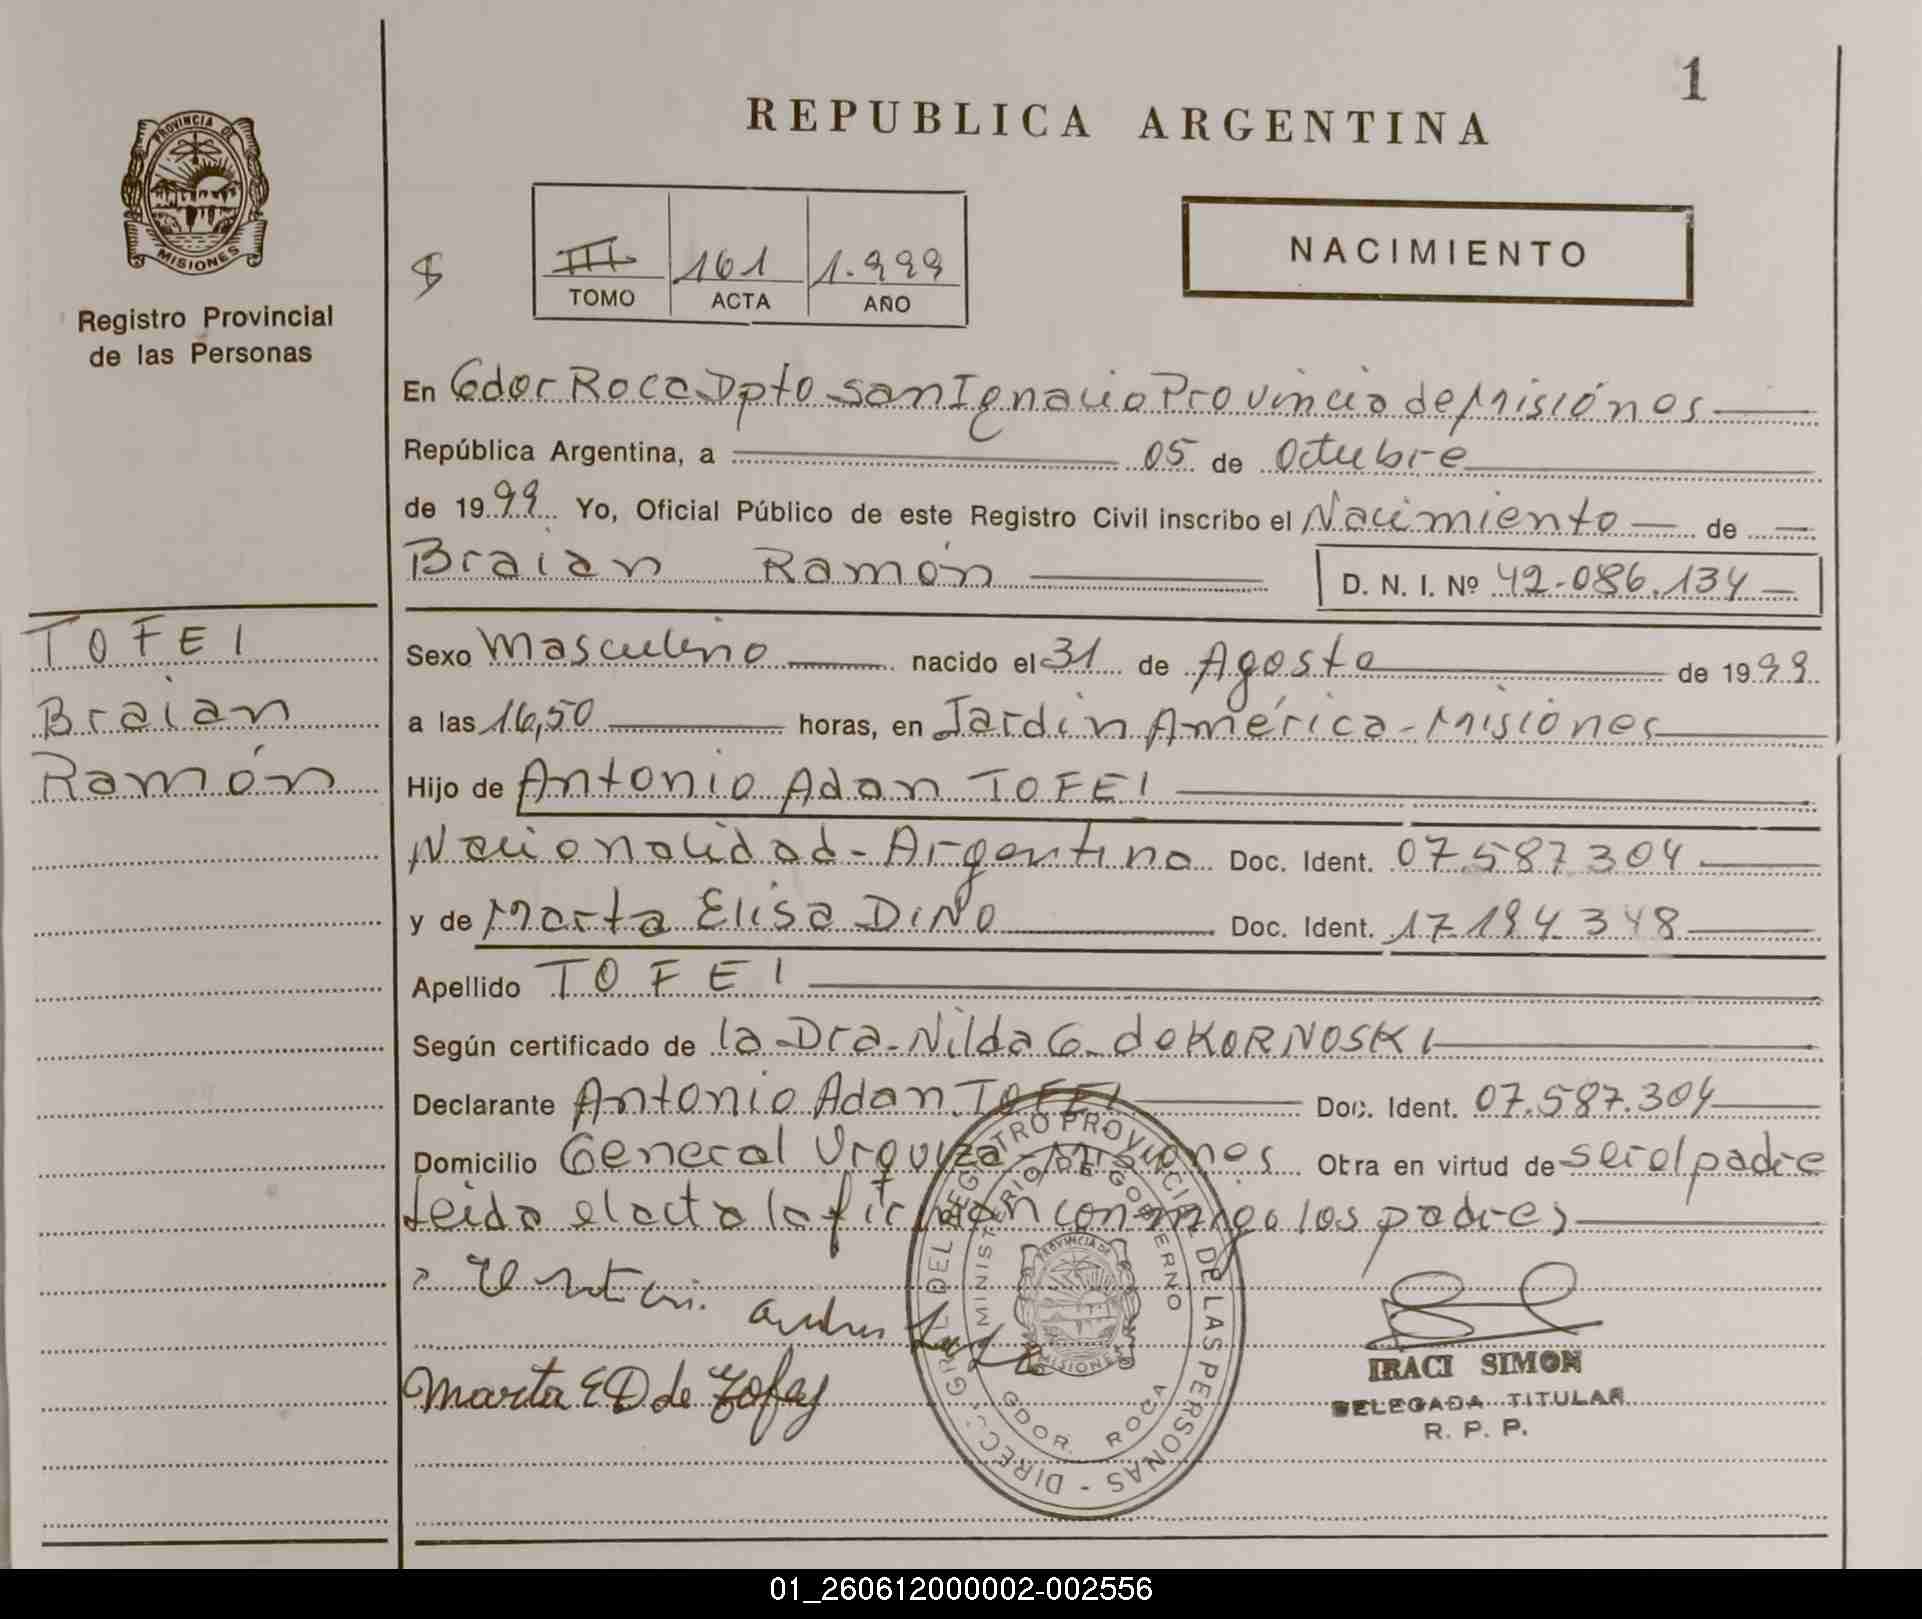 1
REPUBLICA ARGENTINA
PROVINCIA DE
MISIONES
Registro Provincial
de las Personas
III 161 1.999
TOMO ACTA AÑO
NACIMIENTO
En Gdor Roca Dpto san Ignacio Provincia de Misiónes
República Argentina, a 05 de Octubre
de 1999 Yo, Oficial Público de este Registro Civil inscribo el Nacimiento de
Braian Ramón D. N. I. Nº 42.086.134
TOFEI
Braian
Ramón
Sexo Masculino nacido el 31 de Agosto de 1999
a las 16,50 horas, en Jardín América - Misiones
Hijo de Antonio Adan TOFEI
Nacionalidad - Argentina Doc. Ident. 07.587.304
y de Marta Elisa DINO Doc. Ident. 17.194.348
Apellido TOFEI
Según certificado de la Dra. Nilda G. de KORNOSKI
Declarante Antonio Adan TOFEI Doc. Ident. 07.587.304
Domicilio General Urquiza - Misiones Obra en virtud de ser el padre
Leida el acta la firman conmigo los padres
Marta E D de Tofey
DIRECC. GRAL. DEL REGISTRO PROVINCIAL DE LAS PERSONAS -
MINISTERIO DE GOBERNO
PROVINCIA DE
MISIONES
GDOR. ROCA
IRACI SIMON
DELEGADA TITULAR
R. P. P.
01_260612000002-002556